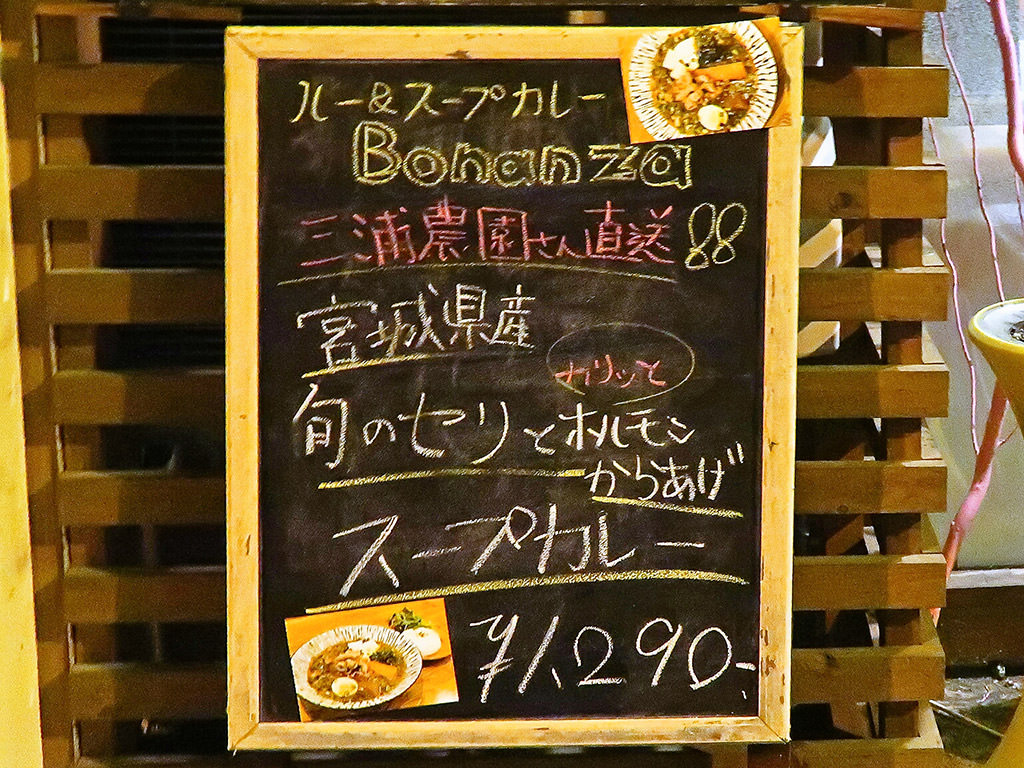 ルー&スープカレー
Bonanza
三浦農園さん直送
宮城県産
カリッと
旬のセリとホルモン
からあげ
スープカレー
¥1,290-